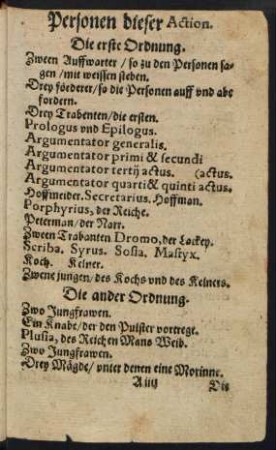 Personen dieser Action.
Die erste Ordnung.
Zween Auffwarter / so zu den Personen sa-
gen / mit weissen steben.
Drey förderer / so die Personen auff vnd abe
fordern.
Drey Trabenten / die ersten.
Prologus vnd Epilogus.
Argumentator generalis.
Argumentator primi & secundi
Argumentator tertij actus. (actus.
Argumentator quarti & quinti actus.
Hoffmeider. Secretarius. Hoffman.
Porphyrius, der Reiche.
Peterman / der Narr.
Zween Trabanten Dromo, der Lackey.
Scriba. Syrus. Sosia. Mastyx.
Koch. Kelner.
Zwene jungen / des Kochs vnd des Kelners.
Die ander Ordnung.
Zwo Jungfrawen.
Ein Knabe / der den Pulster vortregt.
Plusia, des Reichen Mans Weib.
Zwo Jungfrawen.
Drey Mägde / vnter denen eine Morinne.
A iiij Die